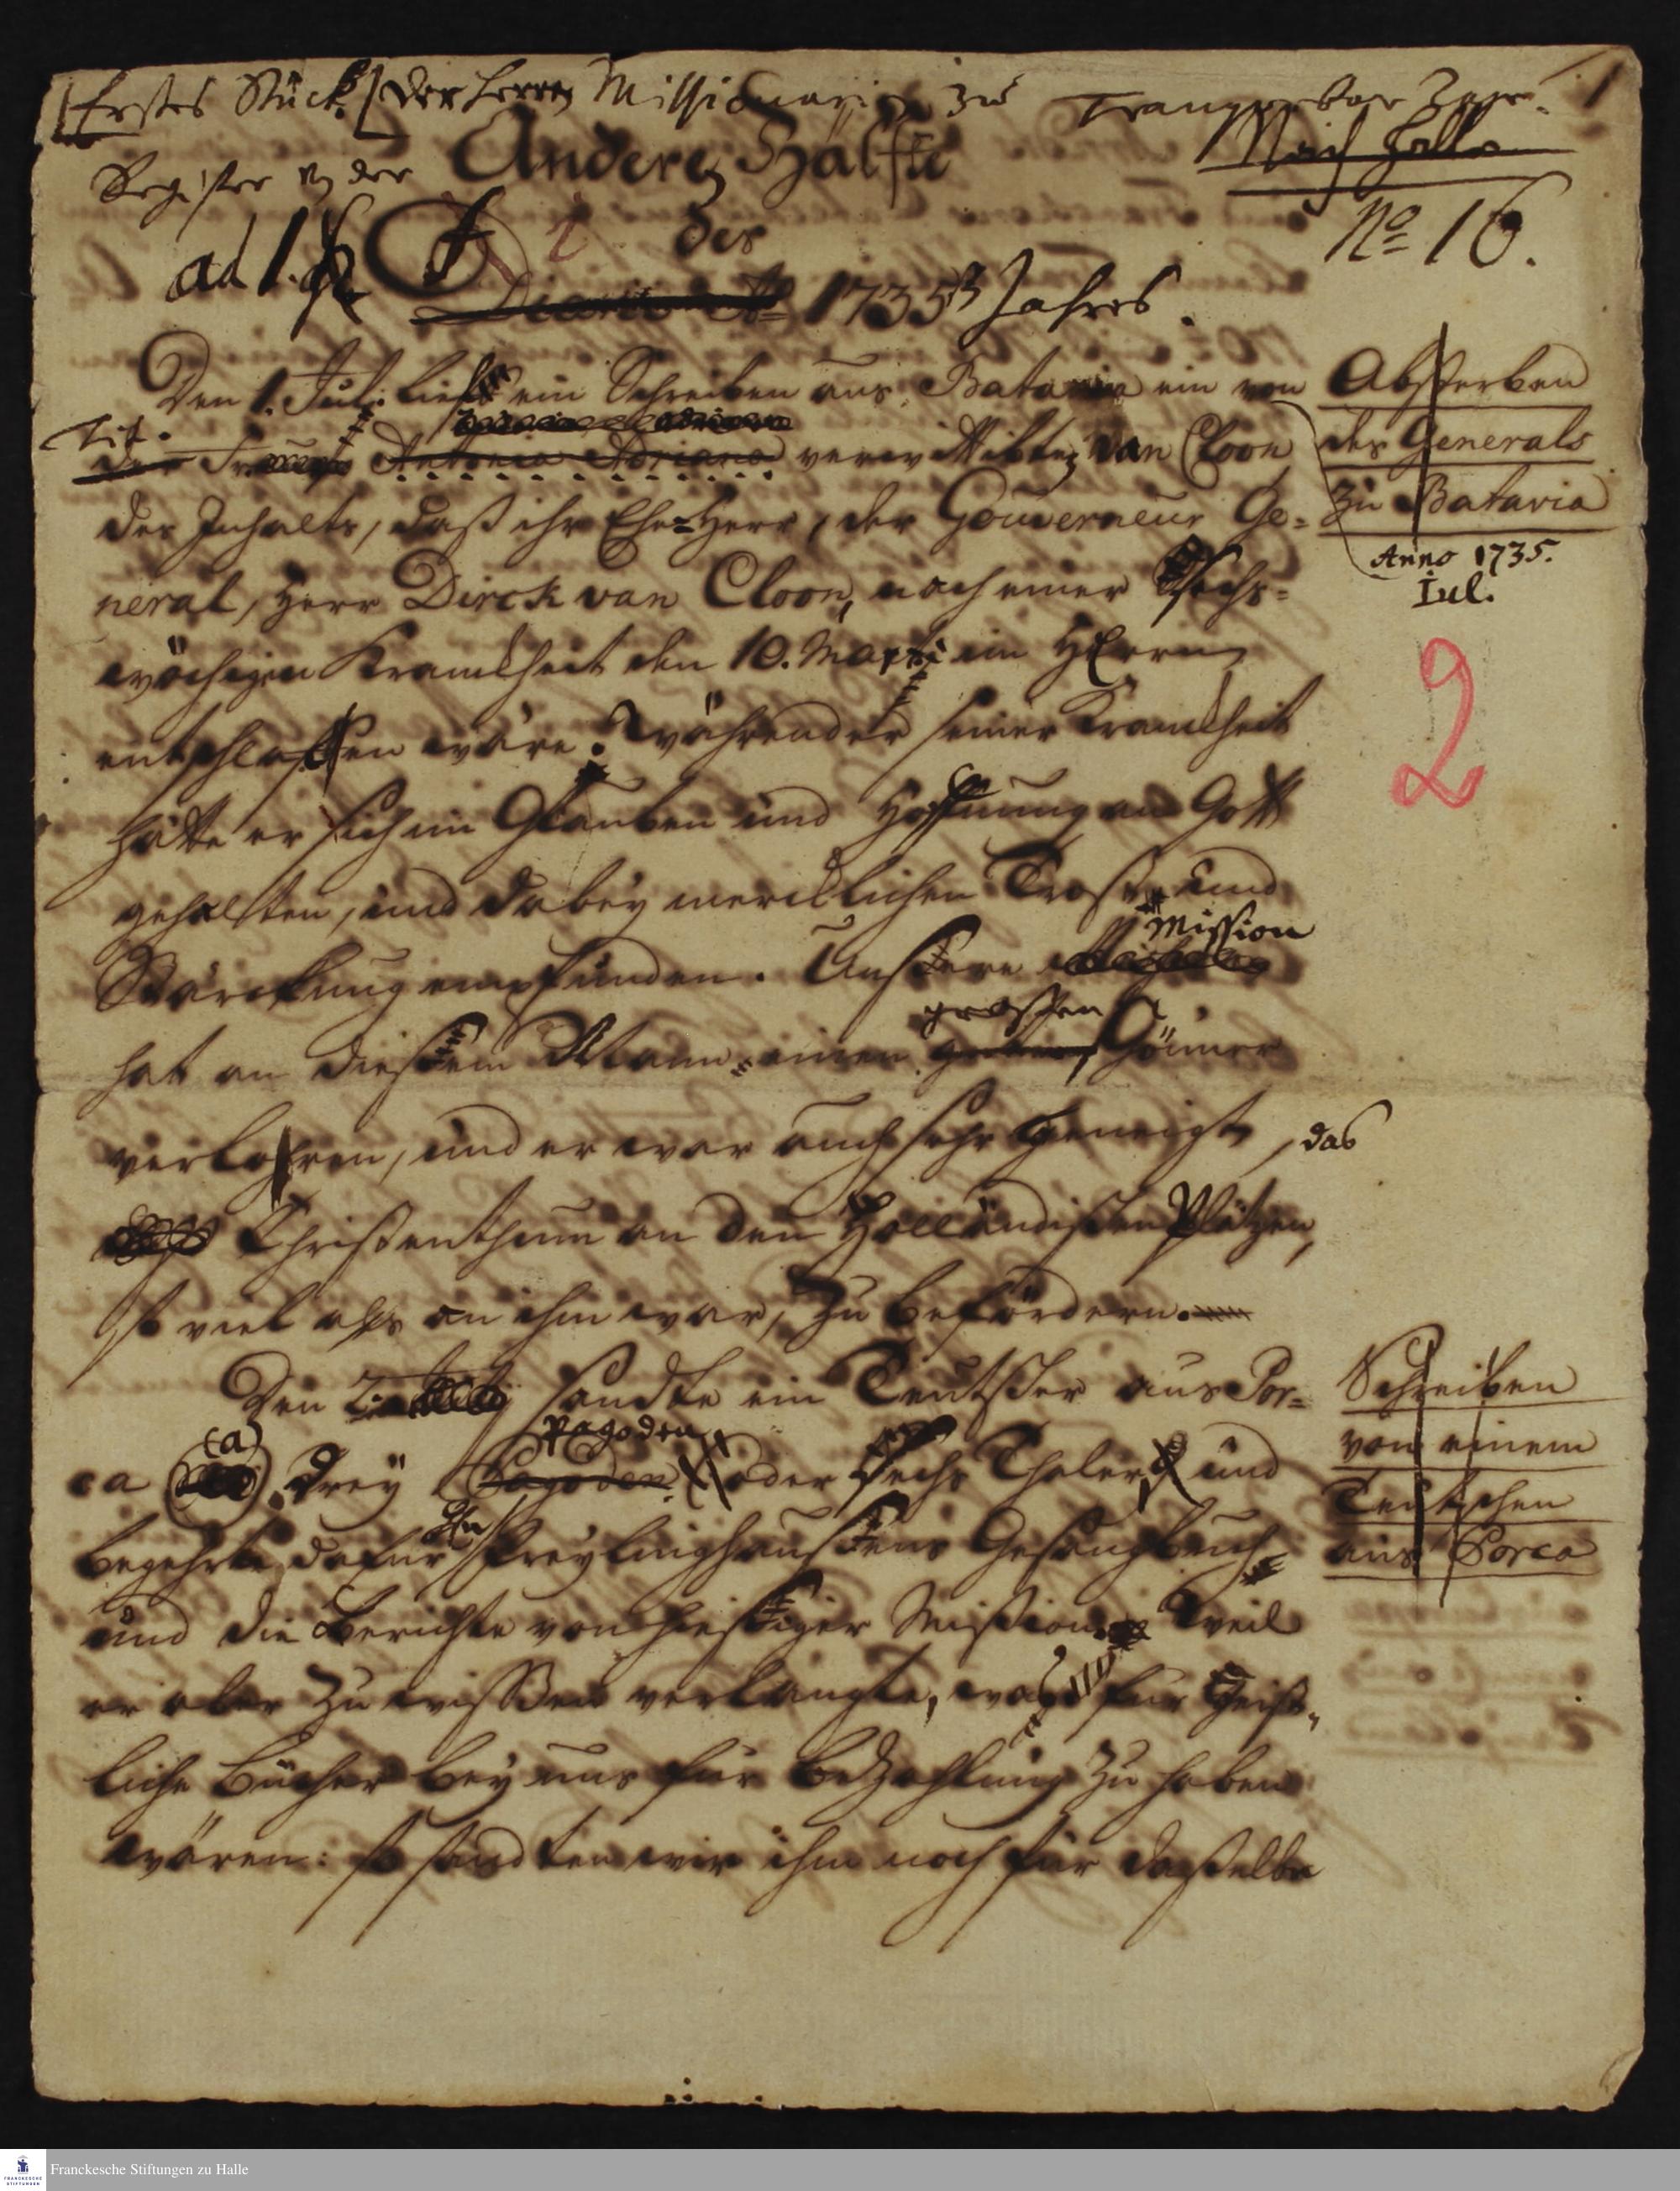 Erstes Stück. der Herren Missionarien zu Tranquebar Tage-
Register von der Andern Hälfte
Nach Halle
des
No 16.
ad 1.
1735 Jahres.
Den 1. Jul. lief ein Schreiben aus Batavia ein von
Tit.
der Fr. Antonia Adriana verwittbten van Cloon
des Inhalts, daß ihr Ehe-Herr, der Gouverneur Ge-
neral, Herr Dirck van Cloon, nach einer Sechs-
wöchigen Kranckheit den 10. Martii im HErrn
entschlaffen wäre. Während seiner Kranckheit
hätte er sich im Glauben und Hoffnung an Gott
gehalten, und dabey mercklichen Trost und
Stärckung empfunden. Unsere Mission
hat an diesem Mann einen grossen Gönner
verlohren, und er war auch sehr geneigt, das
Christenthum an den Holländischen Plätzen,
so viel als an ihm war, zu befördern.
Den 2. sandte ein Teutscher aus Por-
ca (a) drey Pagoden oder Sechs Thaler und
begehrte dafür Hn Freylinghausens Gesangbuch
und die Berichte von hiesiger Mission. Weil
er aber zu wissen verlangte, was für Geist-
liche Bücher bey uns für Bezahlung zu haben
wären: so sandten wir ihm noch für dasselbe
Absterben
des Generals
zu Batavia
Anno 1735.
Iul.
2
Schreiben
von einem
Teutschen
aus Porca
Franckesche Stiftungen zu Halle